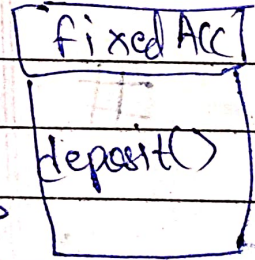 fixed Acc
deposit()